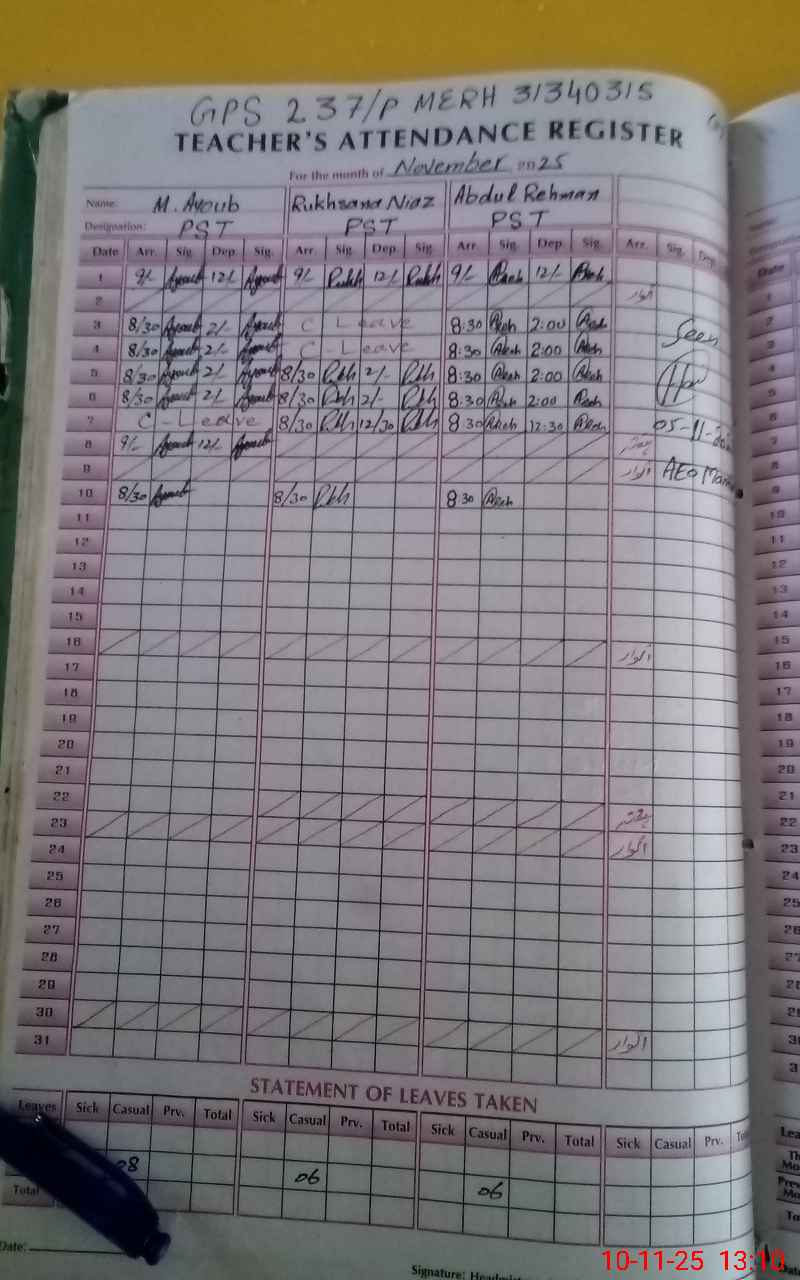 GPS 237/P MERH 31340315
TEACHER'S ATTENDANCE REGISTER
For the month of November 2025
Name: M. Ayoub Rukhsana Niaz Abdul Rehman
Designation: PST PST PST
Date Arr. Sig. Dep. Sig. Arr. Sig. Dep. Sig. Arr. Sig. Dep. Sig. Arr. Sig. Dep.
1 9/- Ayoub 12/- Ayoub 9/- Rukh 12/- Rukh 9/- Reh 12/- Reh
2 اتوار
3 8/30 Ayoub 2/- Ayoub C Leave 8:30 Reh 2:00 Reh
4 8/30 Ayoub 2/- Ayoub C-Leave 8:30 Reh 2:00 Reh
Seen
5 8/30 Ayoub 2/- Ayoub 8/30 Rkh 2/- Rkh 8:30 Reh 2:00 Reh
6 8/30 Ayoub 2/- Ayoub 8/30 Rkh 2/- Rkh 8:30 Reh 2:00 Reh
7 C-Leave 8/30 Rkh 12/30 Rkh 8:30 Reh 12:30 Reh 05-11-
8 9/- Ayoub 12/- Ayoub ہفتہ
9 اتوار AEO
10 8/30 Ayoub 8/30 Rkh 8:30 Reh
11
12
13
14
15
16 اتوار
17
18
19
20
21
22
23 ہفتہ
24 اتوار
25
26
27
28
29
30
31 اتوار
STATEMENT OF LEAVES TAKEN
Leaves Sick Casual Prv. Total Sick Casual Prv. Total Sick Casual Prv. Total Sick Casual Prv.
08 06 06
Total
Date:
Signature:
10-11-25 13:10